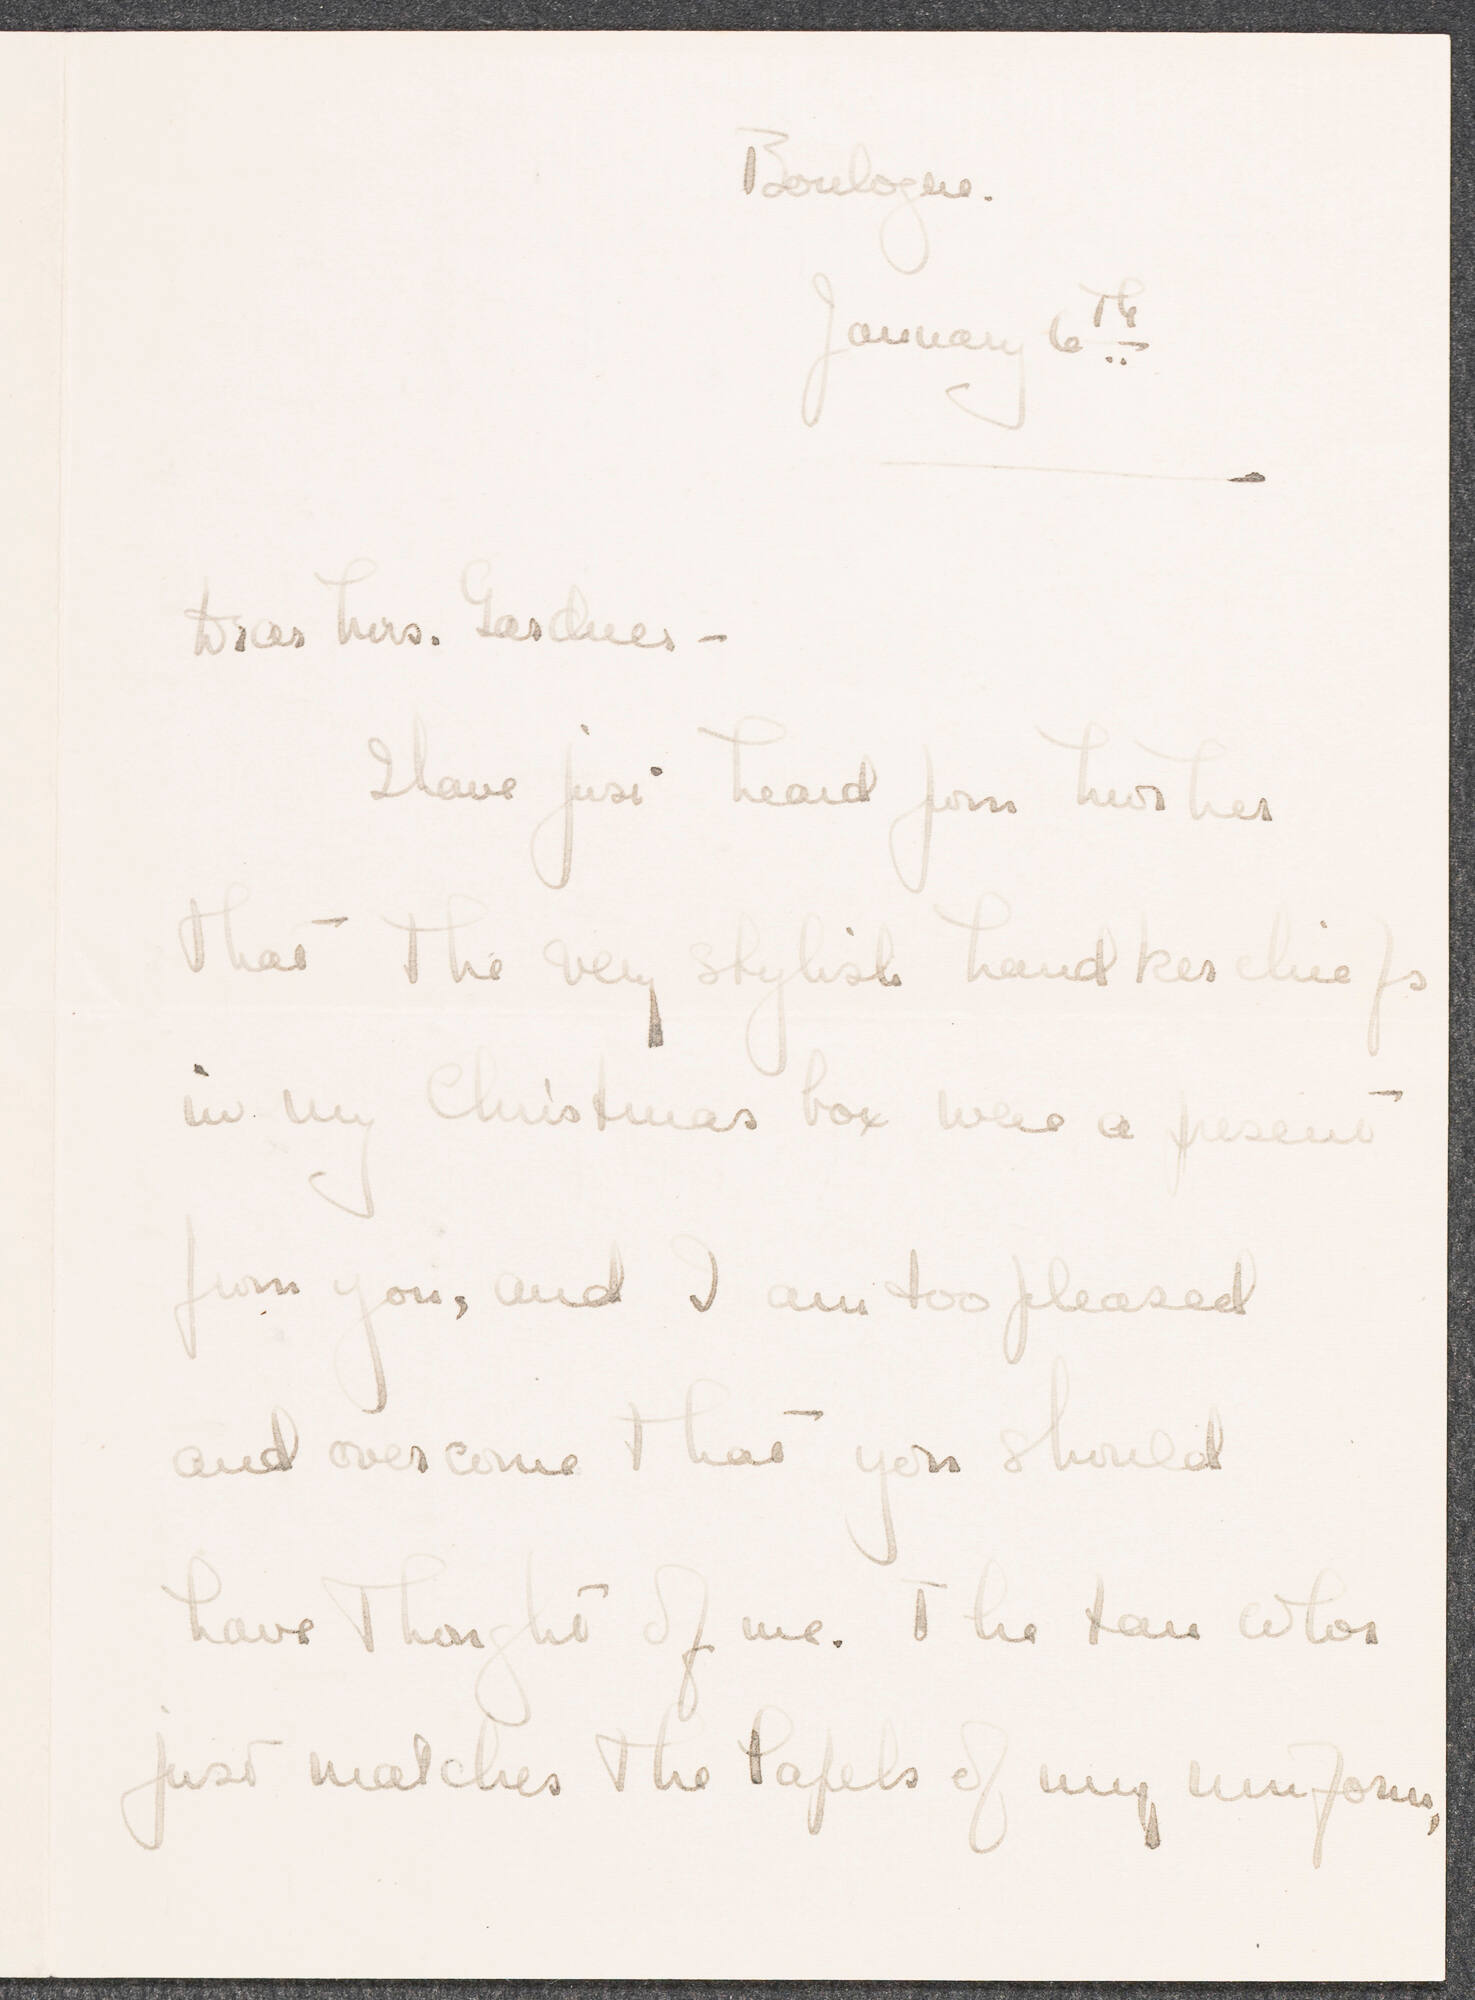 Boulogne.
January 6th
Dear Mrs. Gardner -
I have just heard from Mother
that the very stylish handkerchiefs
in my Christmas box were a present
from you, and I am too pleased
and overcome that you should
have thought of me. The tan color
just matches the lapels of my uniform,